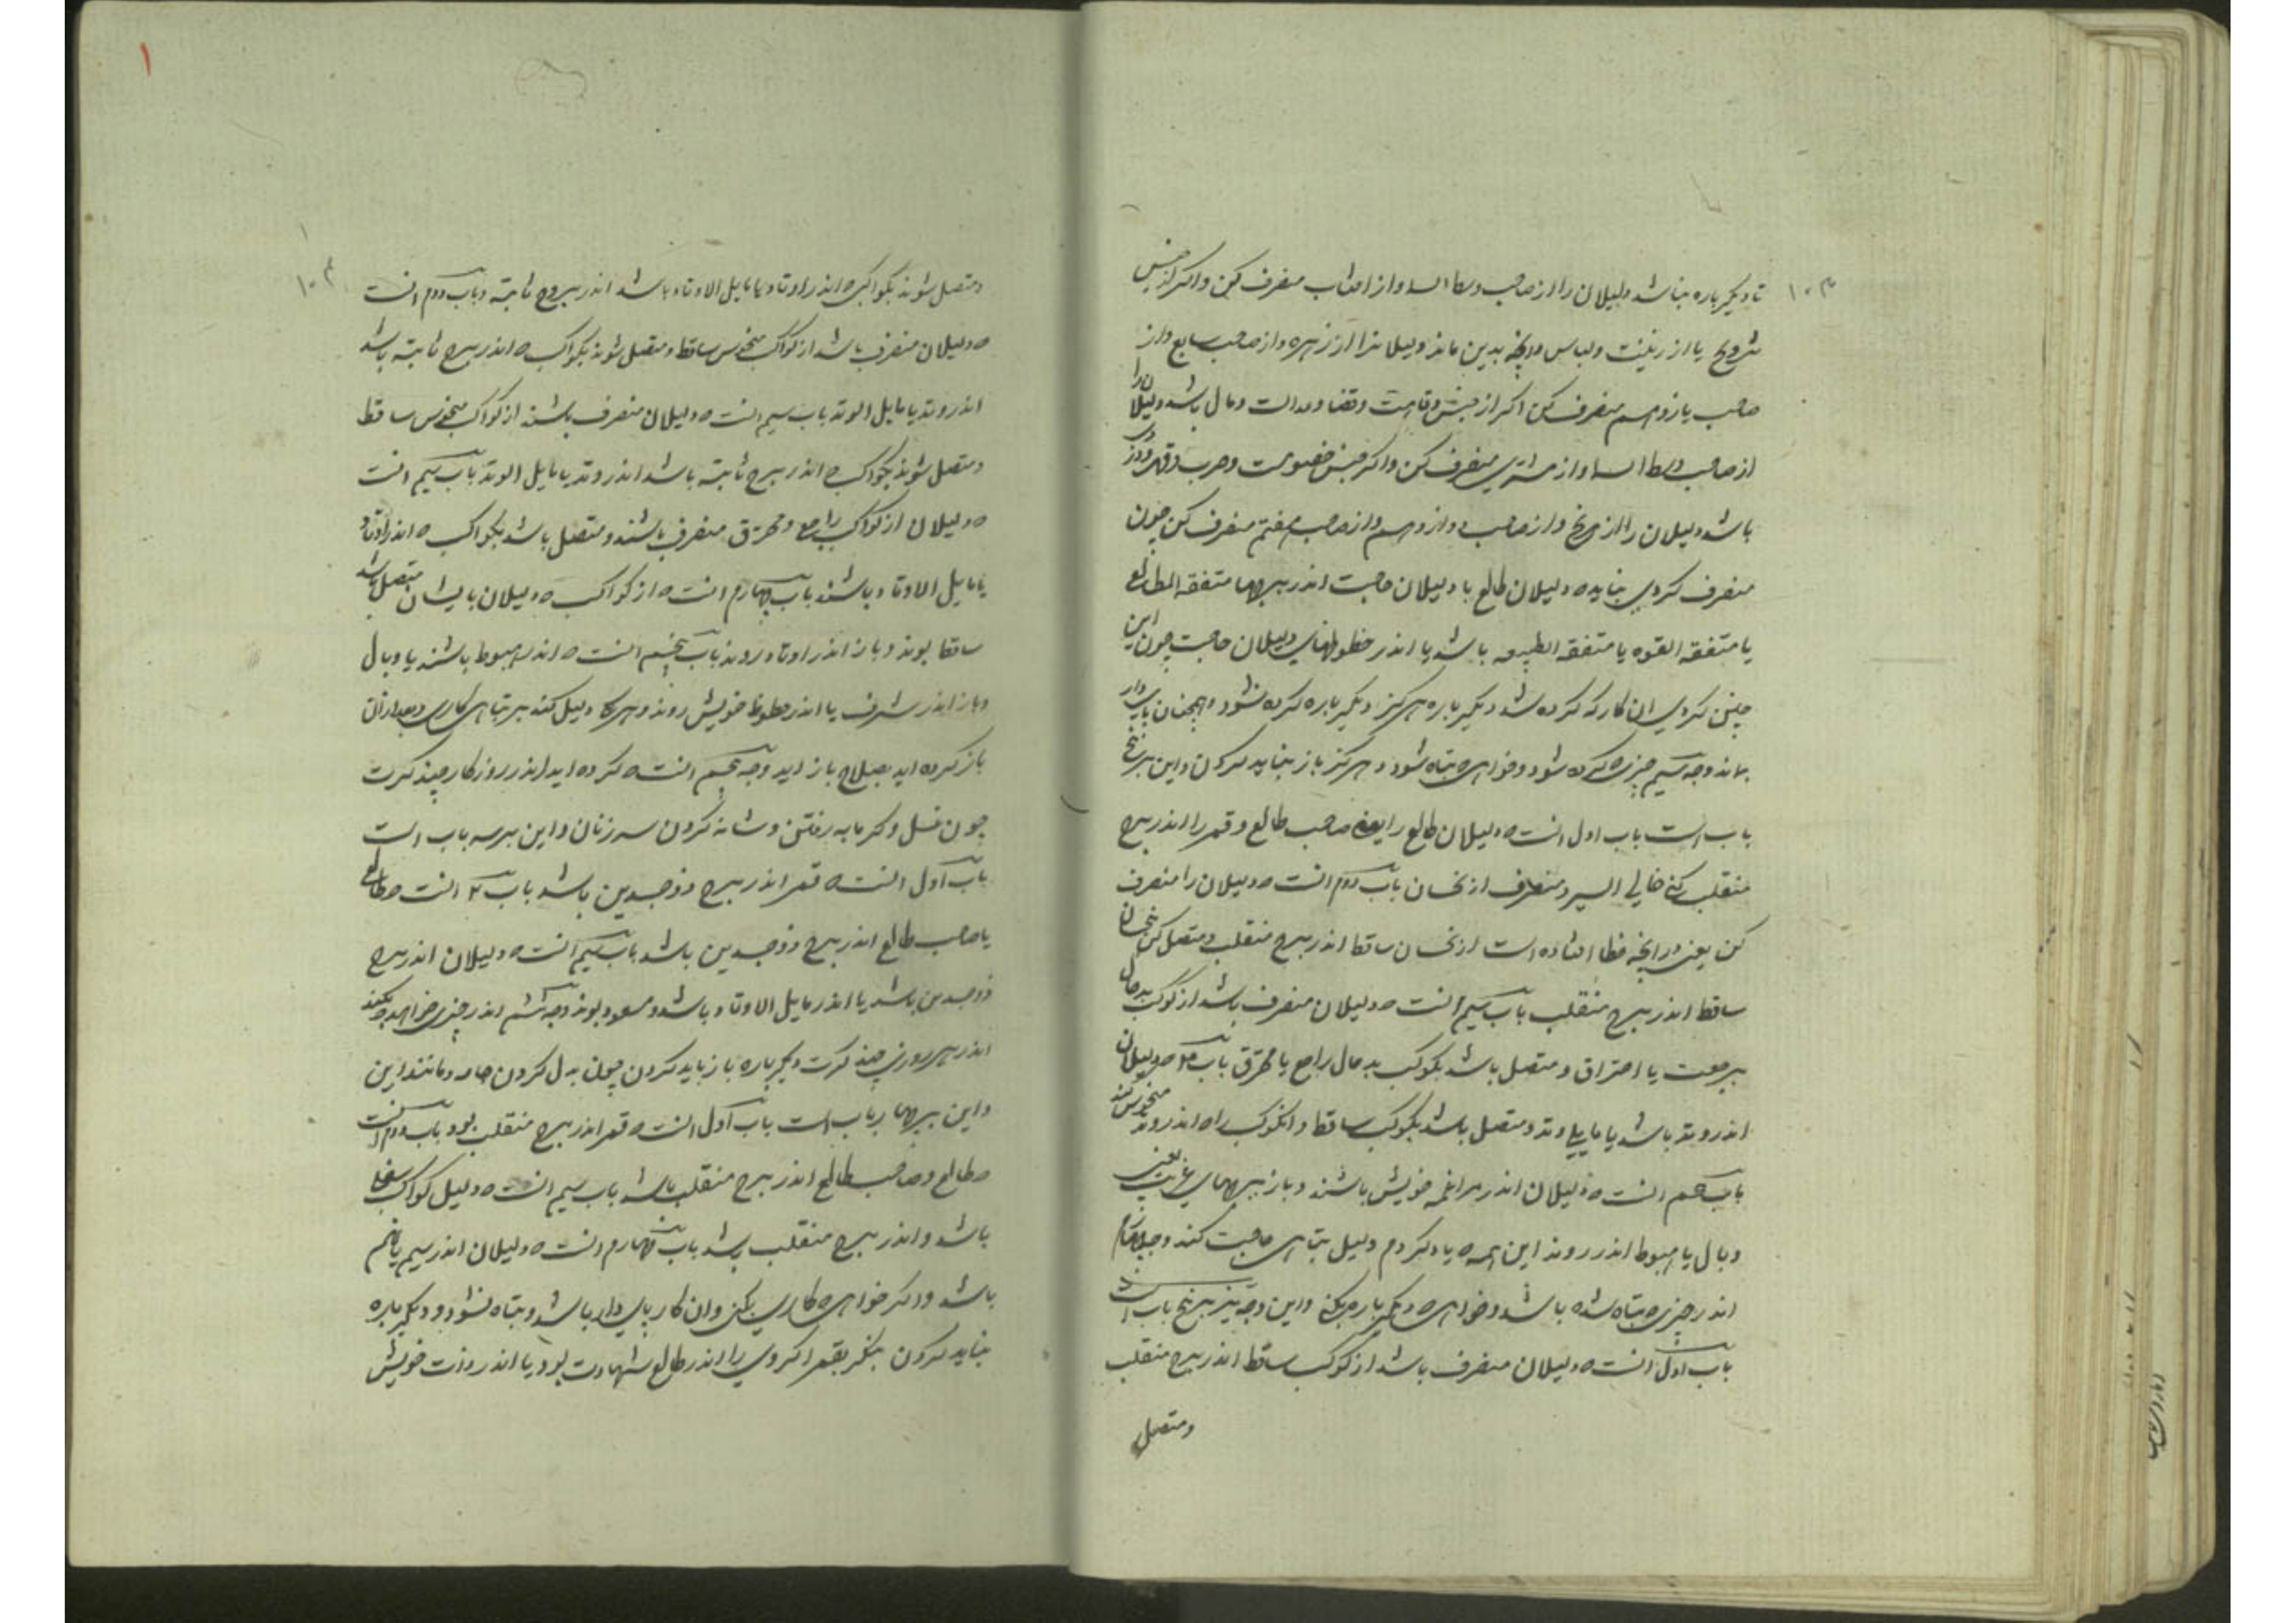 ۱۰۳
تا دیگر باره نباشد دلیلان را از صاحب وسط السما و از افتاب منصرف کن و اگر از جنس
تزویج یا از زینت و لباس و انچه بدین ماند دلیلانرا از زهره و از صاحب سابع و از
صاحب یازدهم منصرف کن اگر از جنس و قضا و عدالت و مال باشد دلیلان را
از صاحب وسط السما و از مشتری منصرف کن و اگر جنس خصومت و حرب و
باشد دلیلان را از مریخ و از صاحب دوازدهم و از صاحب هفتم منصرف کن چون
منصرف کردی بباید ه دلیلان طالع با دلیلان حاجت اندر برجها متفقه المطالع
یا متفقه القوه یا متفقه الطبیعه باشد یا اندر حظوظهای دلیلان حاجت چون این
چنین کردی ان کار که کرده شد دیگر باره هرگز دیگر باره کرده نشود و همچنان پایدار
بماند وجه سیم چیزی ه کرده شود و خواهی ه تباه شود و هرگز باز نباید کردن و این بر پنج
باب است باب اول انست ه دلیلان طالع را یعنی صاحب طالع و قمر را اندر برج
منقلب کنی خالی السیر و منصرف از نحسان باب دوم انست ه دلیلان را منصرف
کن یعنی در انچه خطا افتاده است از نحسان ساقط اندر برج منقلب و متصل کن بنحسان
ساقط اندر برج منقلب باب سیم انست ه دلیلان منصرف باشد از کوکب بدحال
برجعت یا احتراق و متصل باشد بکوکب بدحال راجع یا محترق باب ۴ ه دلیلان
اندر وتد باشد یا مایلی وتد و متصل باشد بکوکب ساقط و انکوکب را ه اندر وتد منحوس کنند
باب پنجم انست ه دلیلان اندر مراغمه خویش باشند و باز ببرجهای غریب یعنی
وبال یا هبوط اندر روند این همه ه یاد کردم دلیل تباهی حاجت کند وجه چهارم
اندر چیزی ه تباه شده باشد و خواهی ه دیگر باره بکنی و این وجه نیز بر پنج باب است
باب اول انست ه دلیلان منصرف باشد از کوکب ساقط اندر برج منقلب
ومتصل
۱
۱۰۴
ومتصل شوند بکواکب ه اندر اوتاد یا مایل الاوتاد باشد اندر بروج ثابته و باب دوم انست
ه دلیلان منصرف باشد از کواکب منحوس ساقط و متصل شوند بکواکب ه اندر برج ثابته باشد
اندر وتد یا مایل الوتد باب سیم انست ه دلیلان منصرف باشند از کواکب منحوس ساقط
و متصل شوند بکواکب ه اندر برج ثابته باشد اندر وتد یا مایل الوتد باب سیم انست
ه دلیلان از کواکب راجع و محترق منصرف باشند و متصل باشد بکواکب ه اندر اوتاد
یا مایل الاوتاد باشند باب چهارم انست ه از کواکب ه دلیلان بایشان متصل باشد
ساقط بوند و باز اندر اوتاد روند باب پنجم انست ه اندر هبوط باشند یا وبال
و باز اندر شرف یا اندر حظوظ خویش روند و هرکا دلیل کند بر تباهی کاری و بعد از آن
باز کرده اید بصلاح باز اید وجه پنجم انست ه کرده اید اندر روزگار چند کرت
چون غسل و گرمابه رفتن و شانه کردن سر زنان و این بر سه باب است
باب اول انست ه قمر اندر برج ذوجسدین باشد باب ۲ انست ه طالع
یا صاحب طالع اندر برج ذوجسدین باشد باب سیم انست ه دلیلان اندر برج
ذوجسدین باشد یا اندر مایل الاوتاد باشد و مسعود بوند وجه ششم اندر چیزی خواهد ه بکند
اندر هر روزی چند کرت دیگر باره باز باید کردن چون بدل کردن جامه و مانند این
و این برجها باب است باب اول انست ه قمر اندر برج منقلب بود باب دوم انست
ه طالع و صاحب طالع اندر برج منقلب باشد باب سیم انست ه دلیل کواکب
باشد و اندر برج منقلب باشد باب چهارم انست ه دلیلان اندر سیم یا نهم
باشد و اگر خواهی ه کاری بکنی و ان کار پای دار باشد و تباه نشود و دیگر باره
نباید کردن بنگر بقمر اگر وی را اندر طالع شهادت بود یا اندر ذات خویش